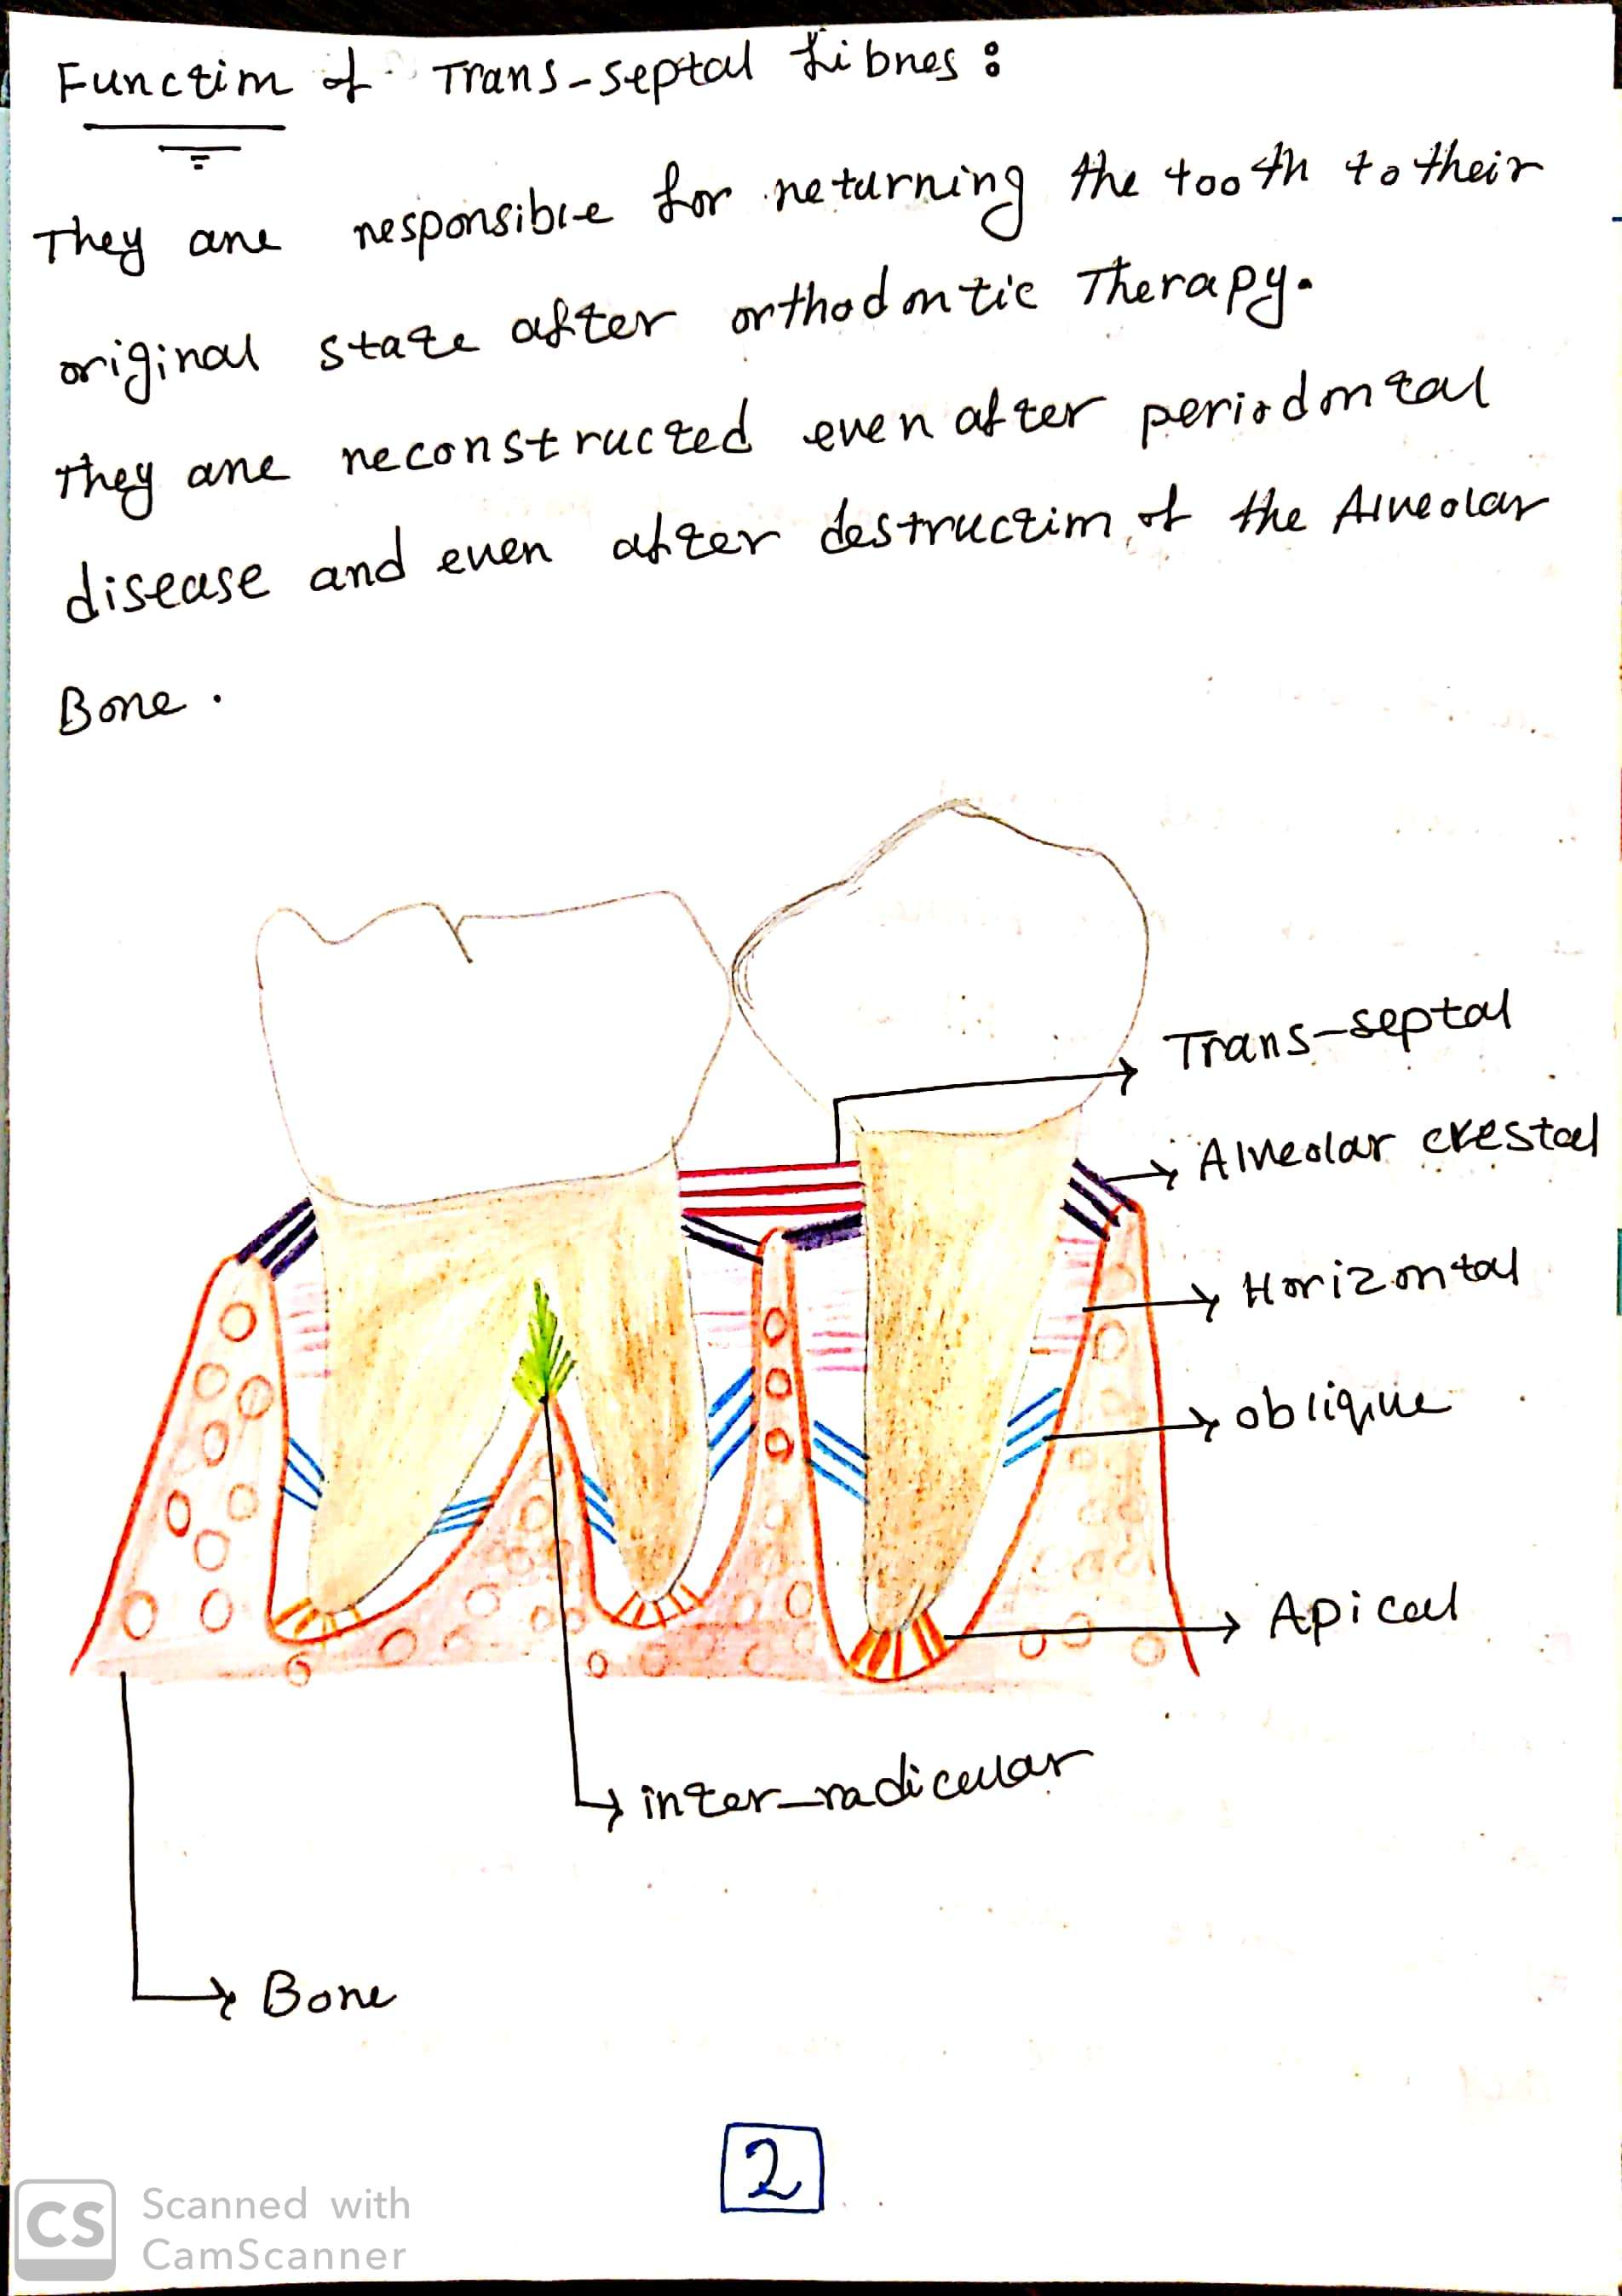 Function of Trans-septal fibres :
They are responsible for returning the tooth to their
original state after orthodontic Therapy.
They are reconstructed even after periodontal
disease and even after destruction of the Alveolar
Bone .
Trans-septal
Alveolar crestal
Horizontal
oblique
Apical
inter-radicular
Bone
2
CS Scanned with
CamScanner